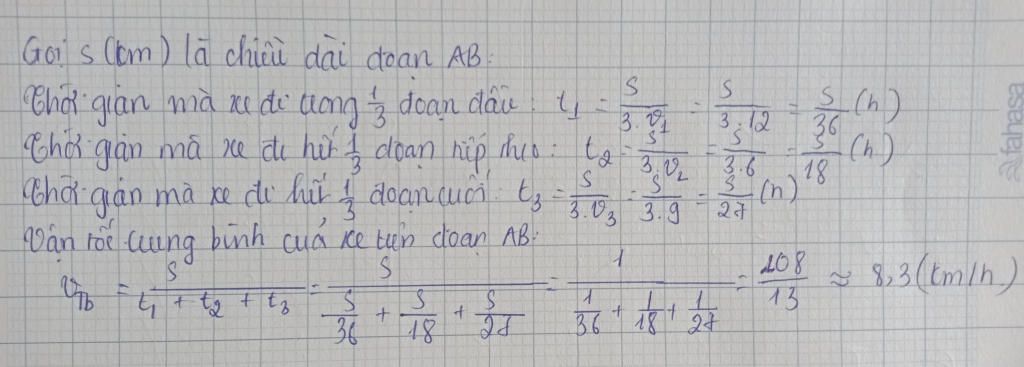 Gọi s (km) là chiều dài đoạn AB:
Thời gian mà xe đi trong 1/3 đoạn đầu: t₁ = s/(3.v₁) = s/(3.12) = s/36 (h)
Thời gian mà xe đi hết 1/3 đoạn tiếp theo: t₂ = s/(3.v₂) = s/(3.6) = s/18 (h)
Thời gian mà xe đi hết 1/3 đoạn cuối: t₃ = s/(3.v₃) = s/(3.9) = s/27 (h)
Vận tốc trung bình của xe trên đoạn AB:
v_Tb = s/(t₁ + t₂ + t₃) = s/(s/36 + s/18 + s/27) = 1/(1/36 + 1/18 + 1/27) = 108/13 ≈ 8,3 (km/h)
fahasa